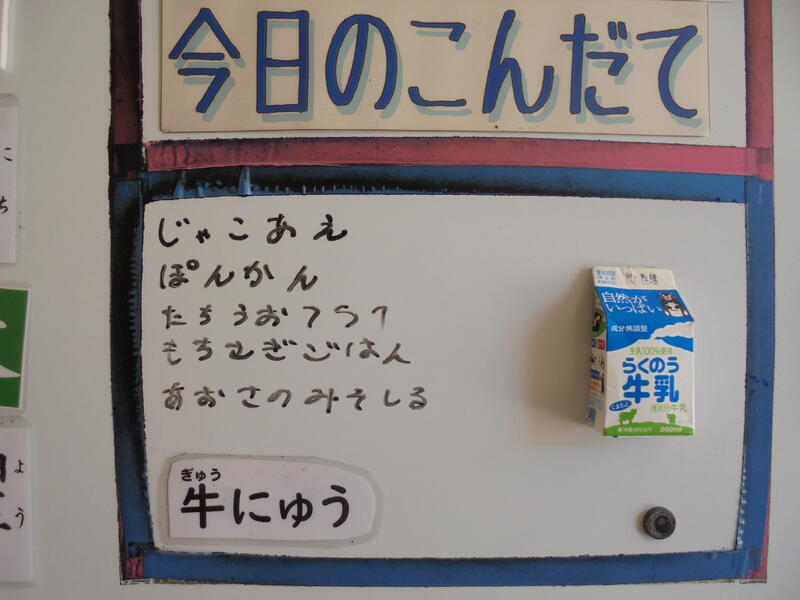 今日のこんだて
じゃこあえ
ぽんかん
たちうおフライ
もちむぎごはん
あおさのみそしる
ぎゅう
牛にゅう
自然が
いっぱい
成分無調整
生乳100%使用
らくのう
牛乳
くまもと
種類別牛乳
200ml
こ
ち
よ
う